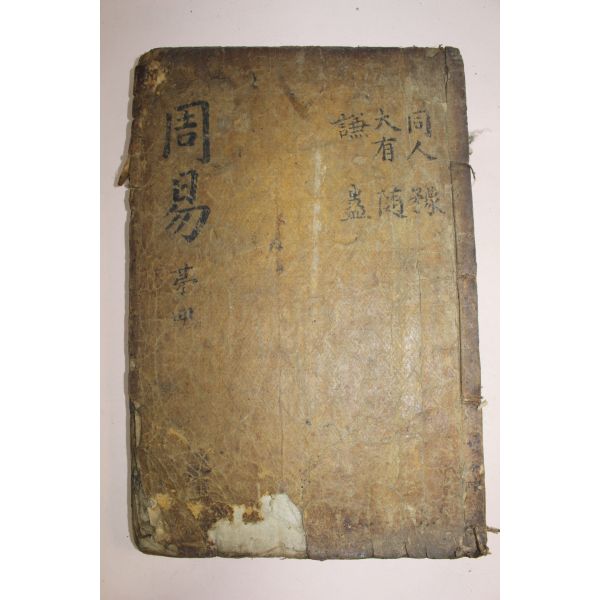 周易
四
同人
大有
謙
豫
随
蠱